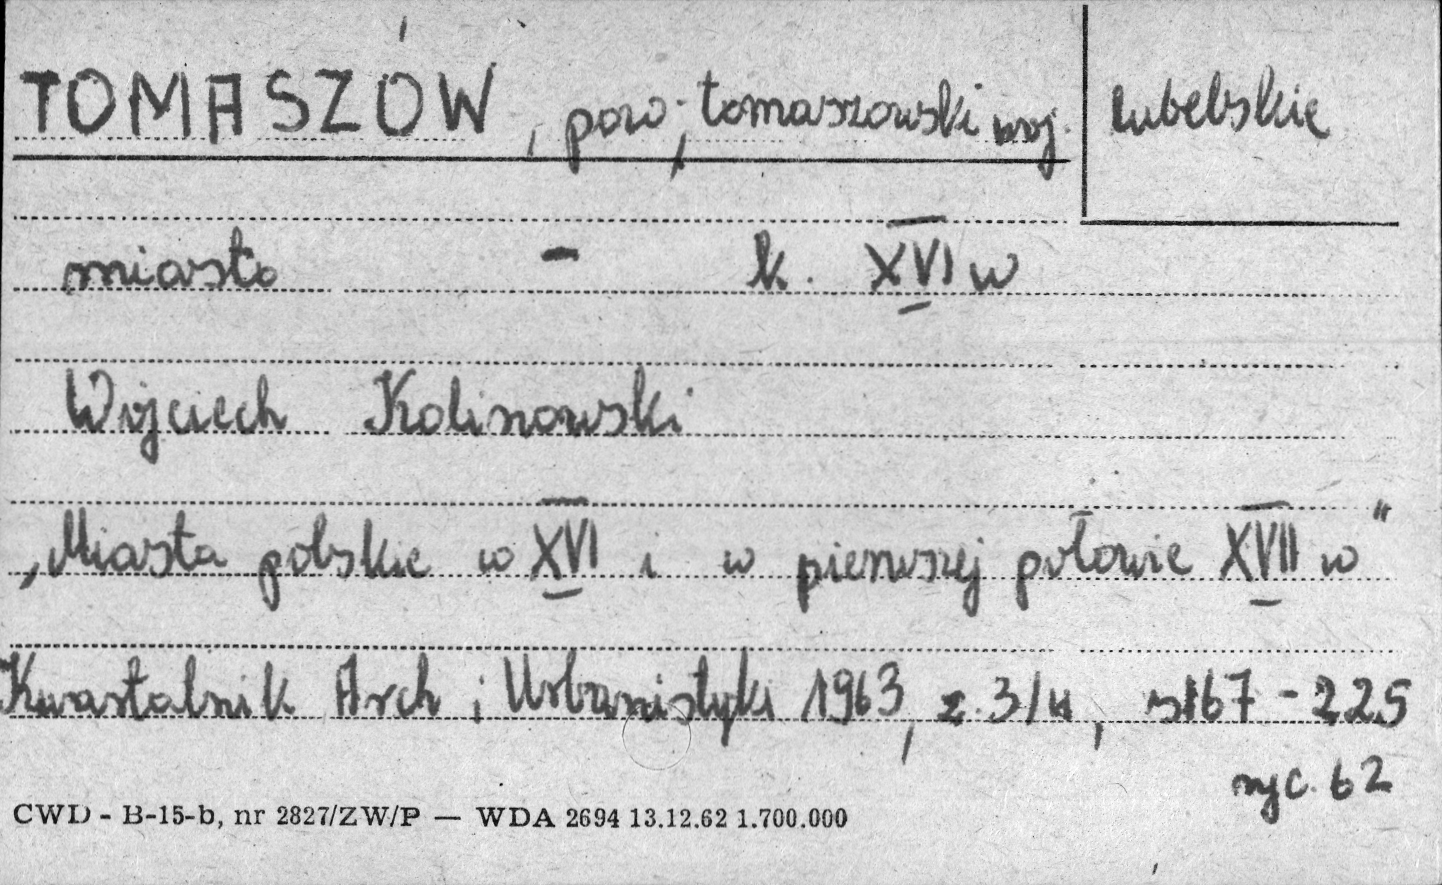 TOMASZÓW, pow. tomaszowski woj. lubelskie
miasto - k. XVI w
Wojciech Kalinowski
„Miasta polskie w XVI i w pierwszej połowie XVII w"
Kwartalnik Arch i Urbanistyki 1963, z. 3/4, s167-225
ryc. 62
CWD - B-15-b, nr 2827/ZW/P — WDA 2694 13.12.62 1.700.000